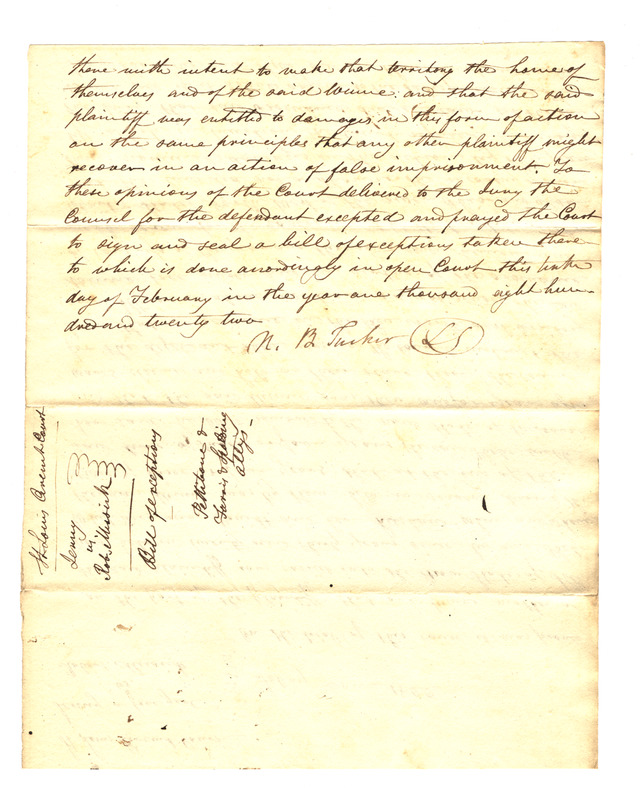 there with intent to make that territory the home of
themselves and of the said Winne; and that the said
plaintiff was entitled to damages in this form of action
on the same principles that any other plaintiff might
recover in an action of false imprisonment. To
these opinions of the Court delivered to the Jury the
Counsel for the defendant excepted and prayed the Court
to sign and seal a bill of exceptions taken there
to which is done accordingly in open Court this
day of February in the year one thousand eight hun-
dred and twenty two
N. B Tucker LS
St Louis Circuit Court
Jenny
vs
Rob. Musick
Bill of exceptions
Pettibone &
Farris &
Attys